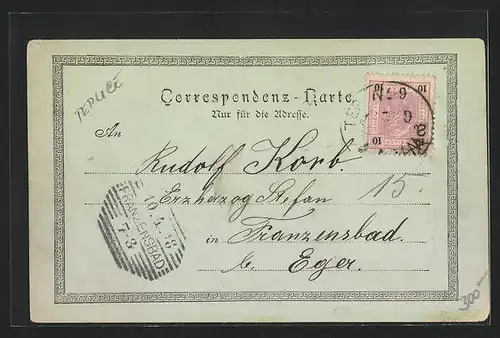 TEPLICE
Correspondenz-Karte
Nur für die Adresse.
10
10
An
Rudolf Korb.
15.
Erzherzog Stefan
in Franzensbad.
b. Eger.
FRANZENSBAD
7-8
300